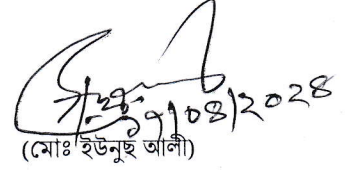 ১৭/০৪/২০২৪
(মোঃ ইউনুছ আলী)